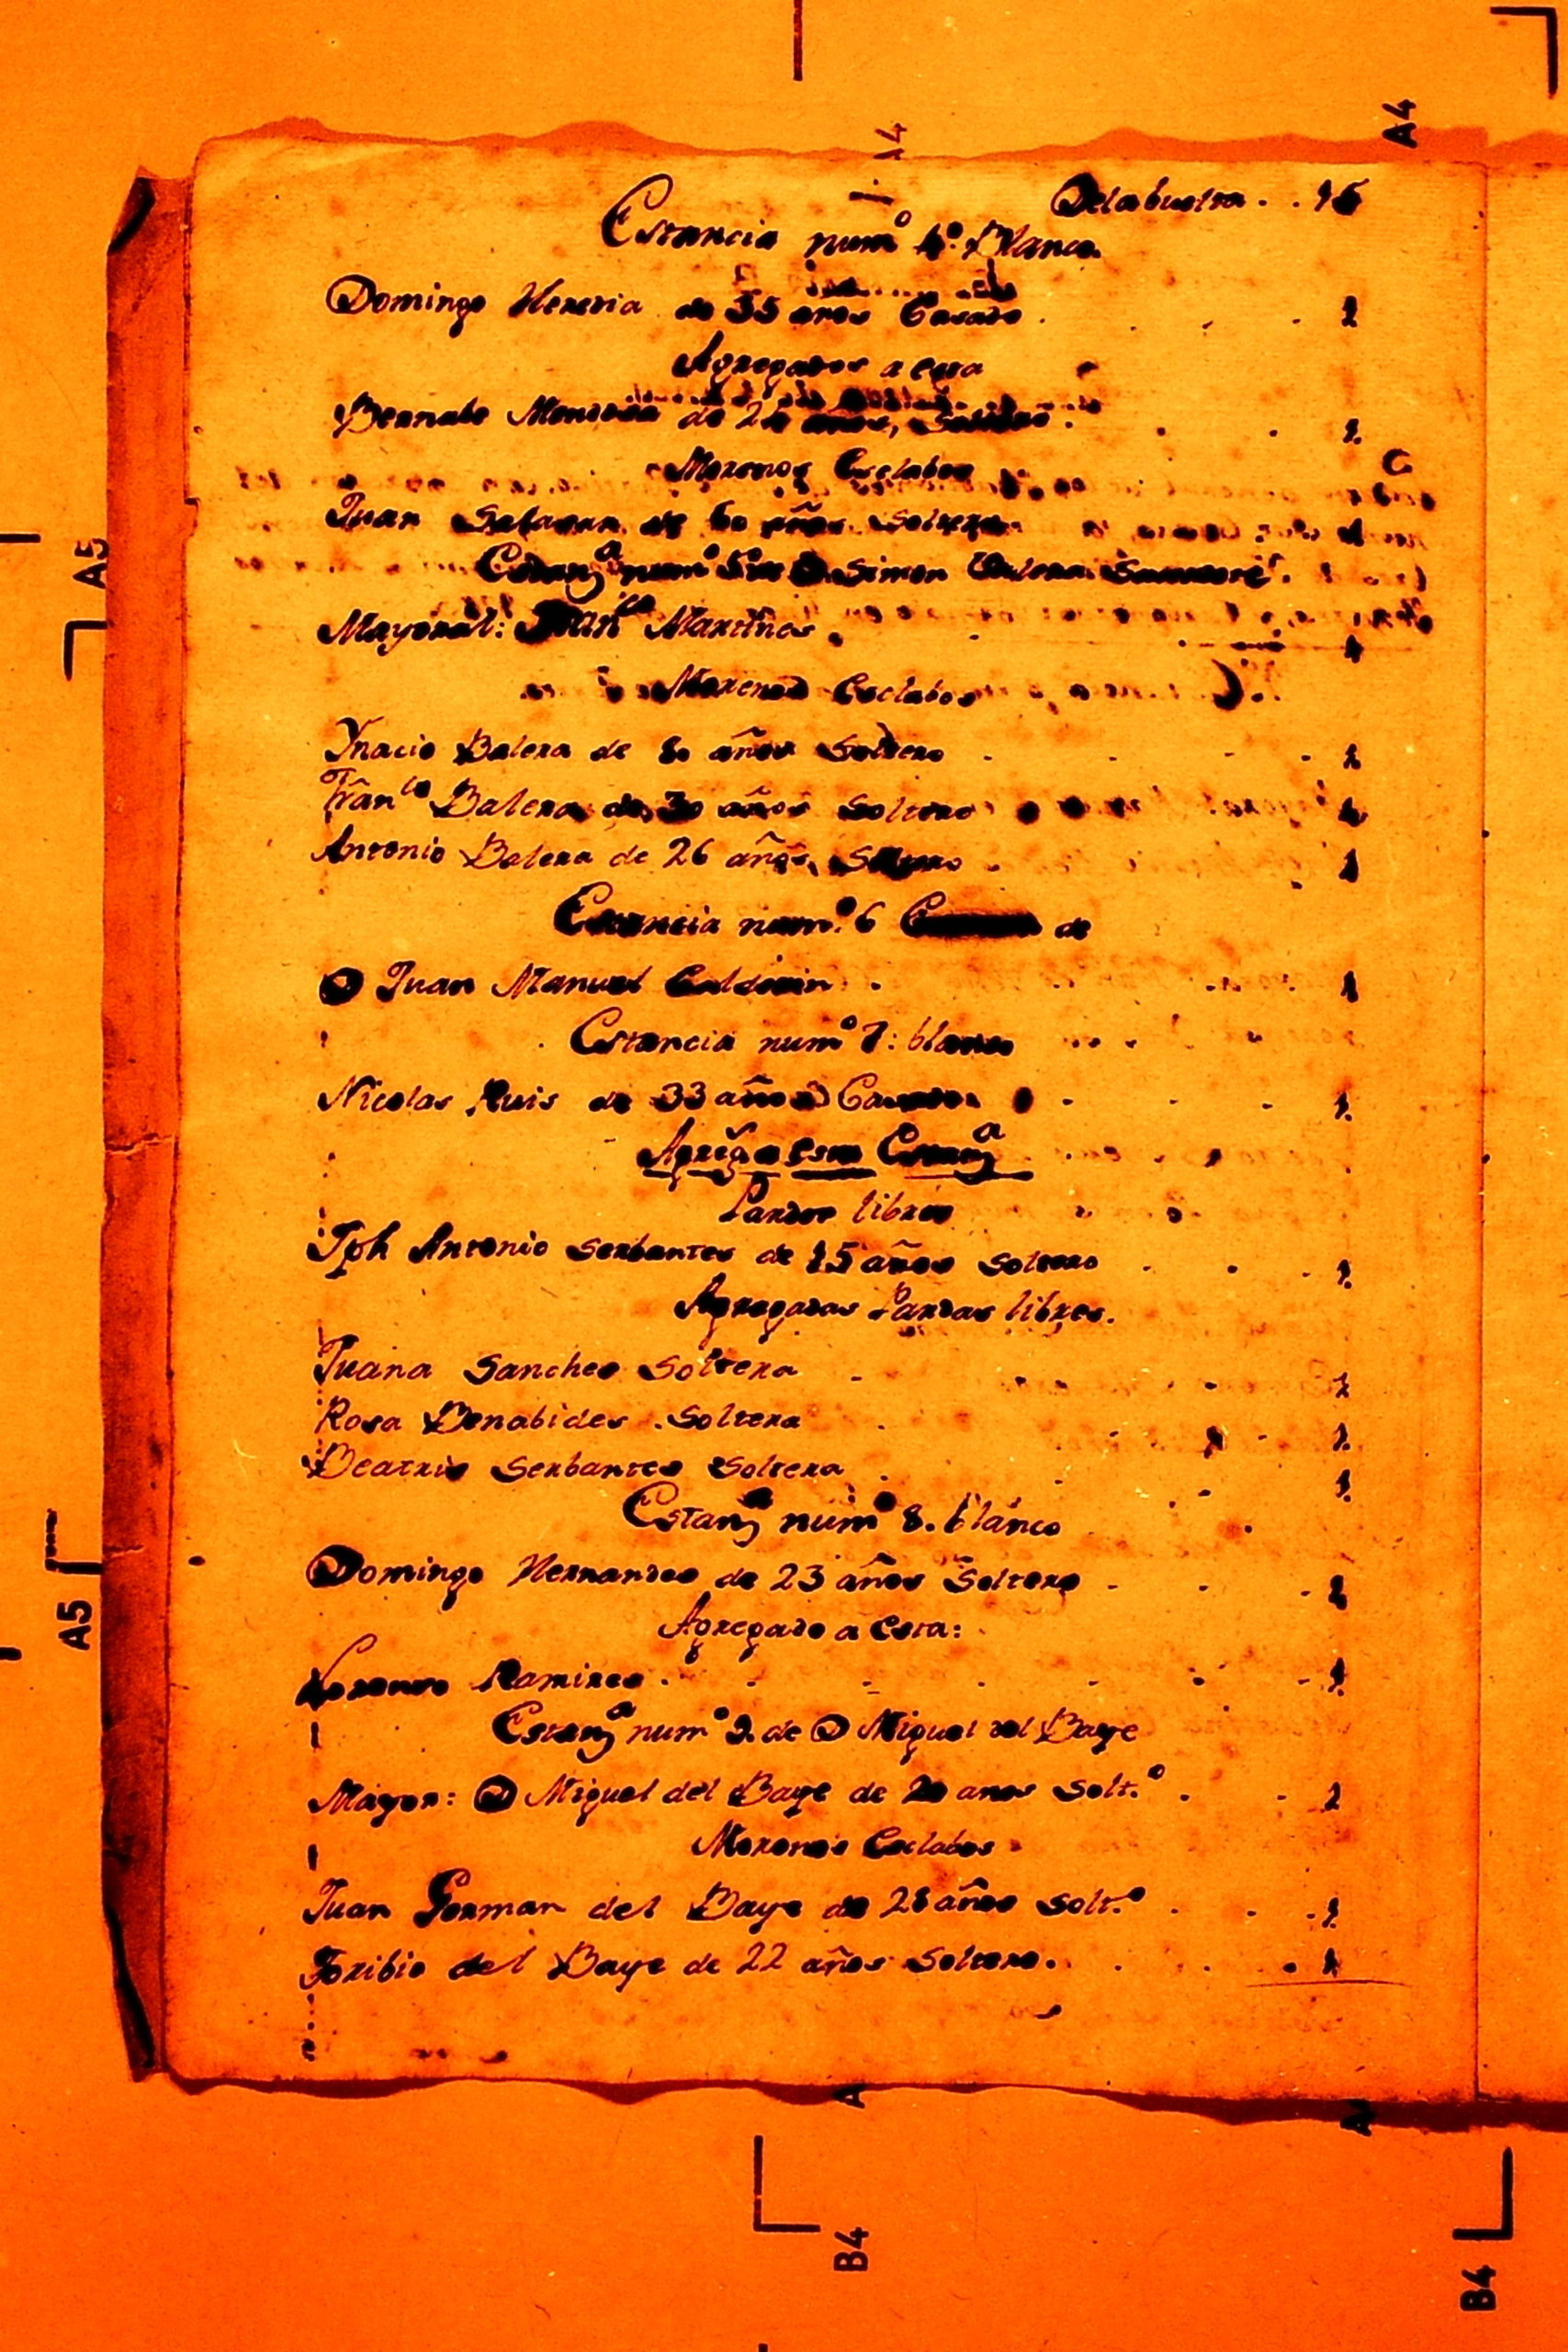 A4
A4
De la buelta . . 16
Estancia num.º 4.º Blanco
Domingo Heredia de 35 años Casado . . . . 1
Agregados a esta
Bernabe de 24 años, Soltero . . . 1.
Morenos Esclabos
Juan Salazar de 60 años Soltero 1
Estanª num.º 5 de D Simon Balera
Mayoral: Franco Martines . . . 1
Morenos Esclabos
Ynacio Balera de 80 años Soltero . . . . 1
Franco Balera de 30 años Soltero 1
Antonio Balera de 26 años, Soltero . . 1
Estancia num.º 6 de
D Juan Manuel Calderin . . . . 1
Estancia num.º 7: blanco
Nicolas Ruis de 33 años Casado . . . 1.
Agreg.ª a esta Estanª
Pardos libres
Jph Antonio Serbantes de 15 años Soltero . . . 1.
Agregadas Pardas libres.
Juana Sanches Soltera . . . . 1
Rosa Benabides . Soltera . . . 1.
Beatris Serbantes Soltera . . . 1.
Estanª num.º 8. blanco
Domingo Hernandes de 23 años Soltero . . . 1
Agregado a Esta:
Lorenso Ramires . . . . . . 1.
Estanª num.º 9. de D Miguel del Baye
Mayor: D Miguel del Baye de 20 anos Solt.º . . 1
Morenos Esclabos
Juan German del Baye de 28 años Solt.º . . . 1
Toribio del Baye de 22 años Soltero . . . . 1
A5
A5
B4
B4